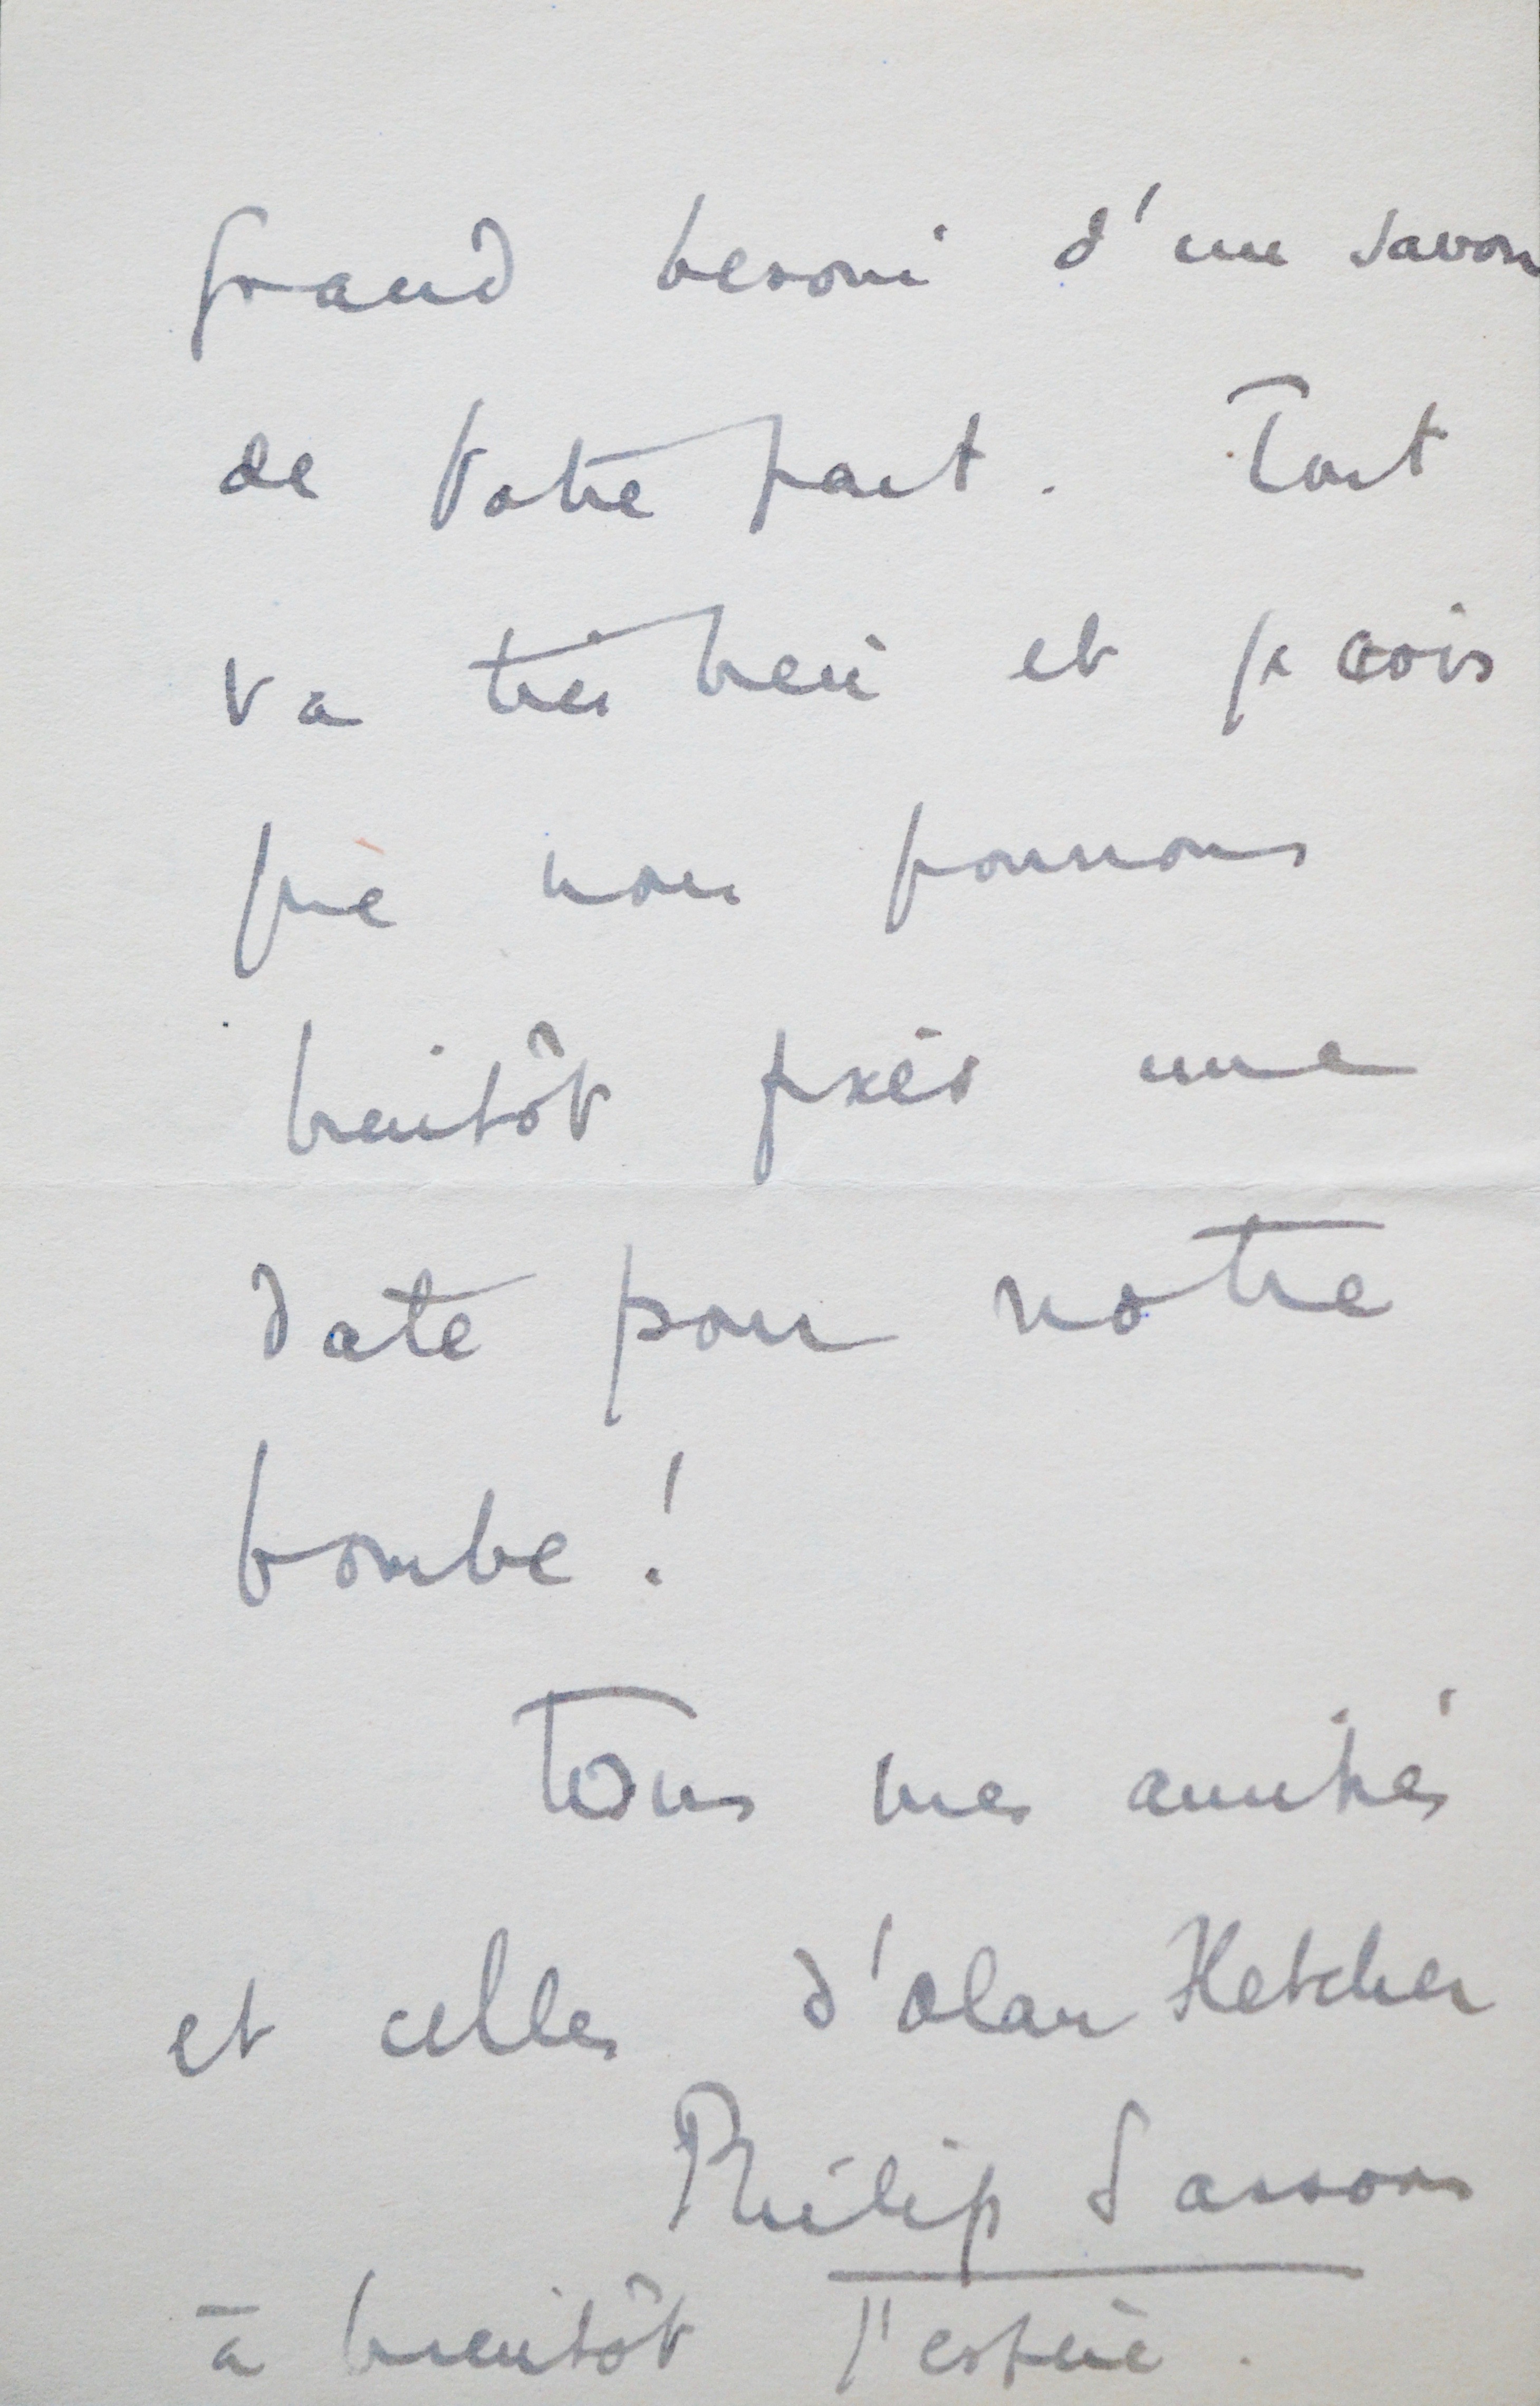 Grand besoin d'un savon
de Votre part. Tout
va très bien et je crois
que nous pourrons
bientôt fixer une
date pour notre
bombe!
Tous mes amitiés
et celles d'Alan Fletcher
Philip Sassoon
à bientôt j'espère.